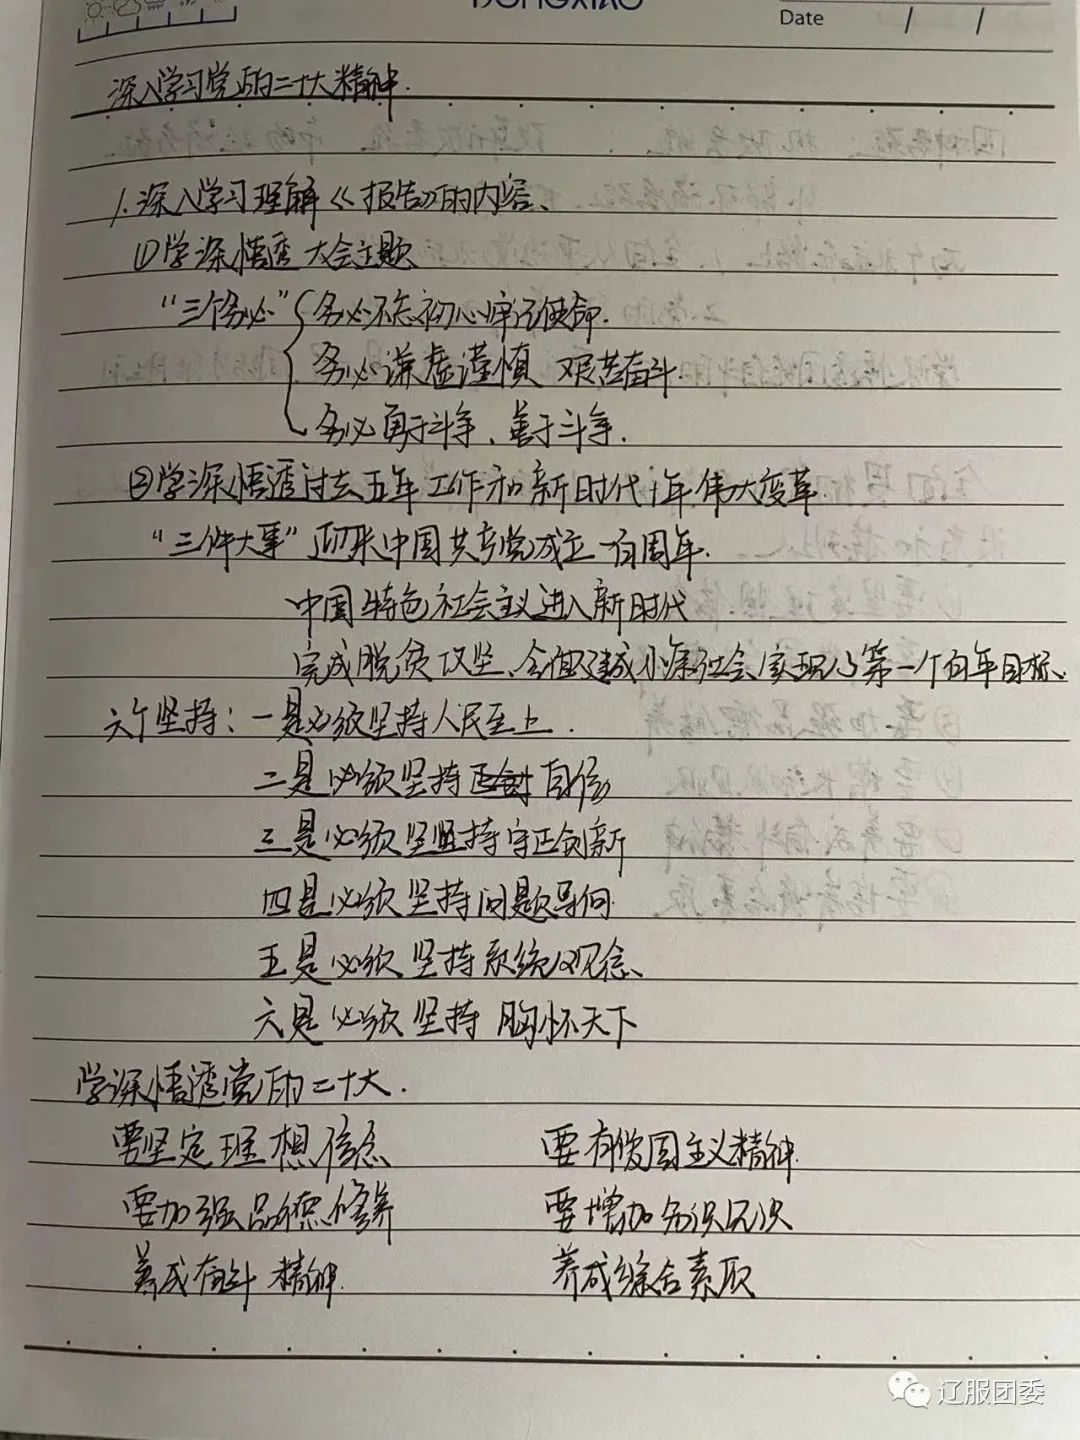 DONGXIAO
Date / /
深入学习党的二十大精神.
1.深入学习理解《报告》的内容、
①学深悟透大会主题
“三个务必” 务必不忘初心牢记使命.
务必谦虚谨慎 艰苦奋斗.
务必勇于斗争、善于斗争.
②学深悟透过去五年工作和新时代十年伟大变革.
“三件大事” 迎来中国共产党成立一百周年.
中国特色社会主义进入新时代
完成脱贫攻坚、全面建成小康社会实现了第一个百年目标、
六个坚持：一是必须坚持人民至上.
二是必须坚持自信
三是必须坚持守正创新
四是必须坚持问题导向
五是必须坚持系统观念、
六是必须坚持胸怀天下
学深悟透党的二十大.
要坚定理想信念 要有爱国主义精神.
要加强品德修养 要增加知识见识
养成奋斗精神. 养成综合素质
辽服团委